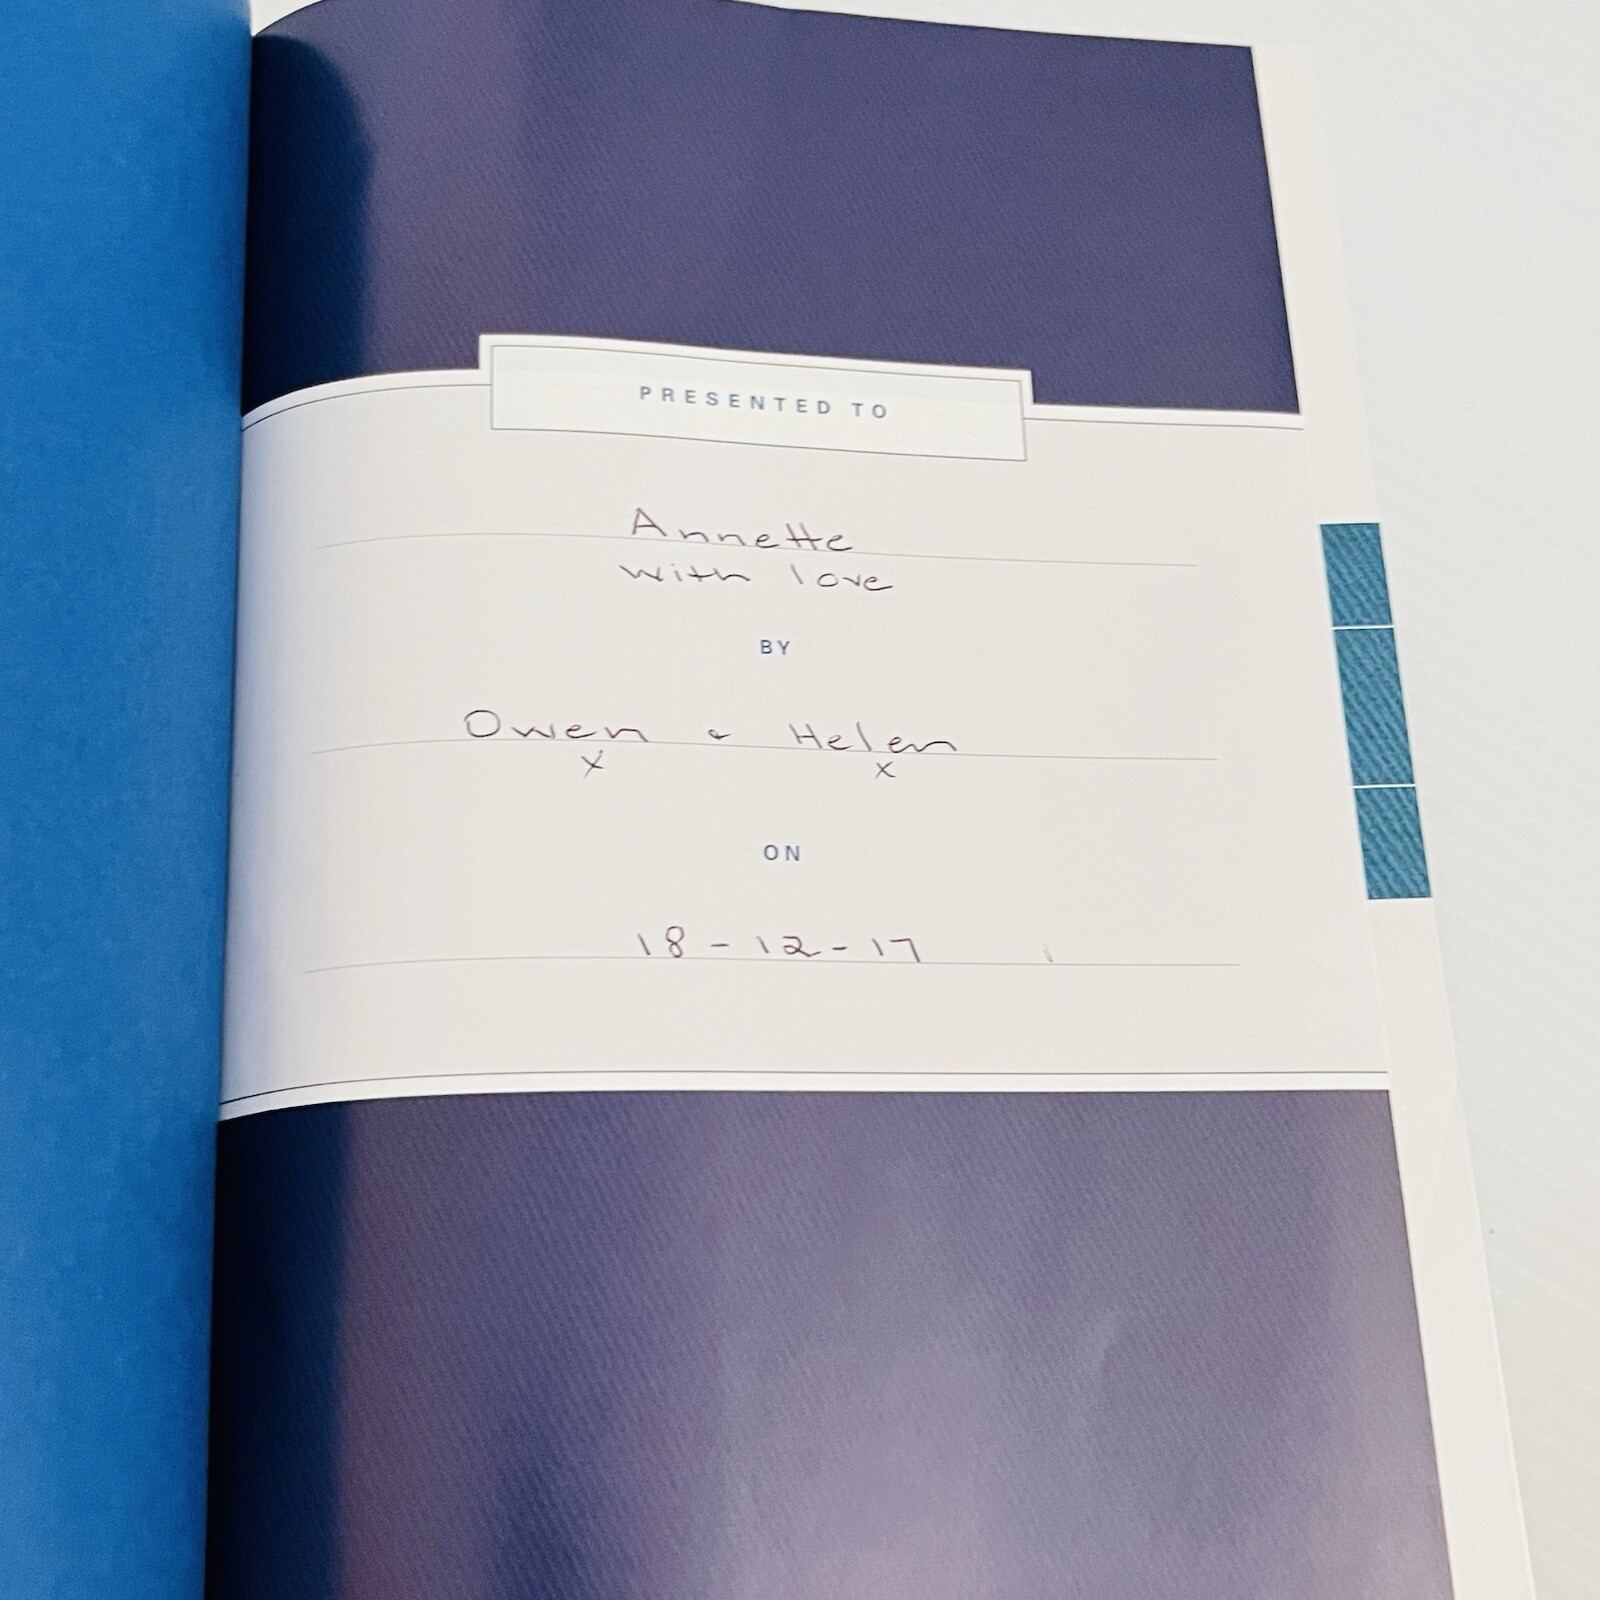 PRESENTED TO
Annette
with love
BY
Owen & Helen
x x
ON
18-12-17